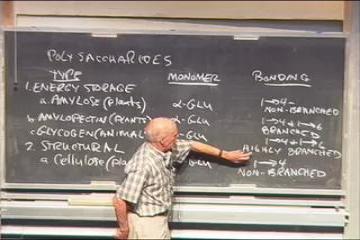 POLYSACCHARIDES
TYPE MONOMER BONDING
1. ENERGY STORAGE
a. AMYLOSE (Plants) α-GLU 1→4- NON-BRANCHED
b. AMYLOPECTIN (PLANTS) α-GLU 1→4 & 1→6 BRANCHED
c. GLYCOGEN (ANIMAL -GLU 1→4 & 1→6 HIGHLY BRANCHED
2. STRUCTURAL
a. Cellulose (pla -GLU 1→4 NON-BRANCHED